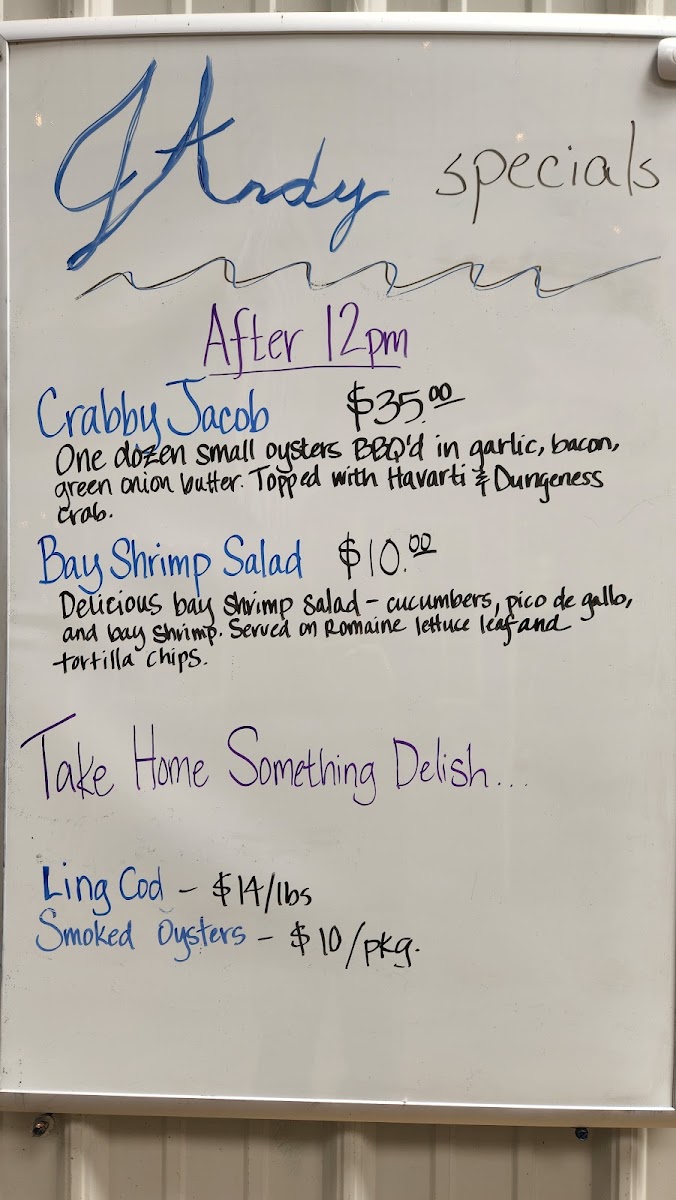 JAndy specials
After 12pm
Crabby Jacob $35.00
One dozen small oysters BBQ'd in garlic, bacon,
green onion butter. Topped with Havarti & Dungeness
crab.
Bay Shrimp Salad $10.00
Delicious bay shrimp salad - cucumbers, pico de gallo,
and bay shrimp. Served on Romaine lettuce leaf and
tortilla chips.
Take Home Something Delish...
Ling Cod - $14/lbs
Smoked Oysters - $10/pkg.